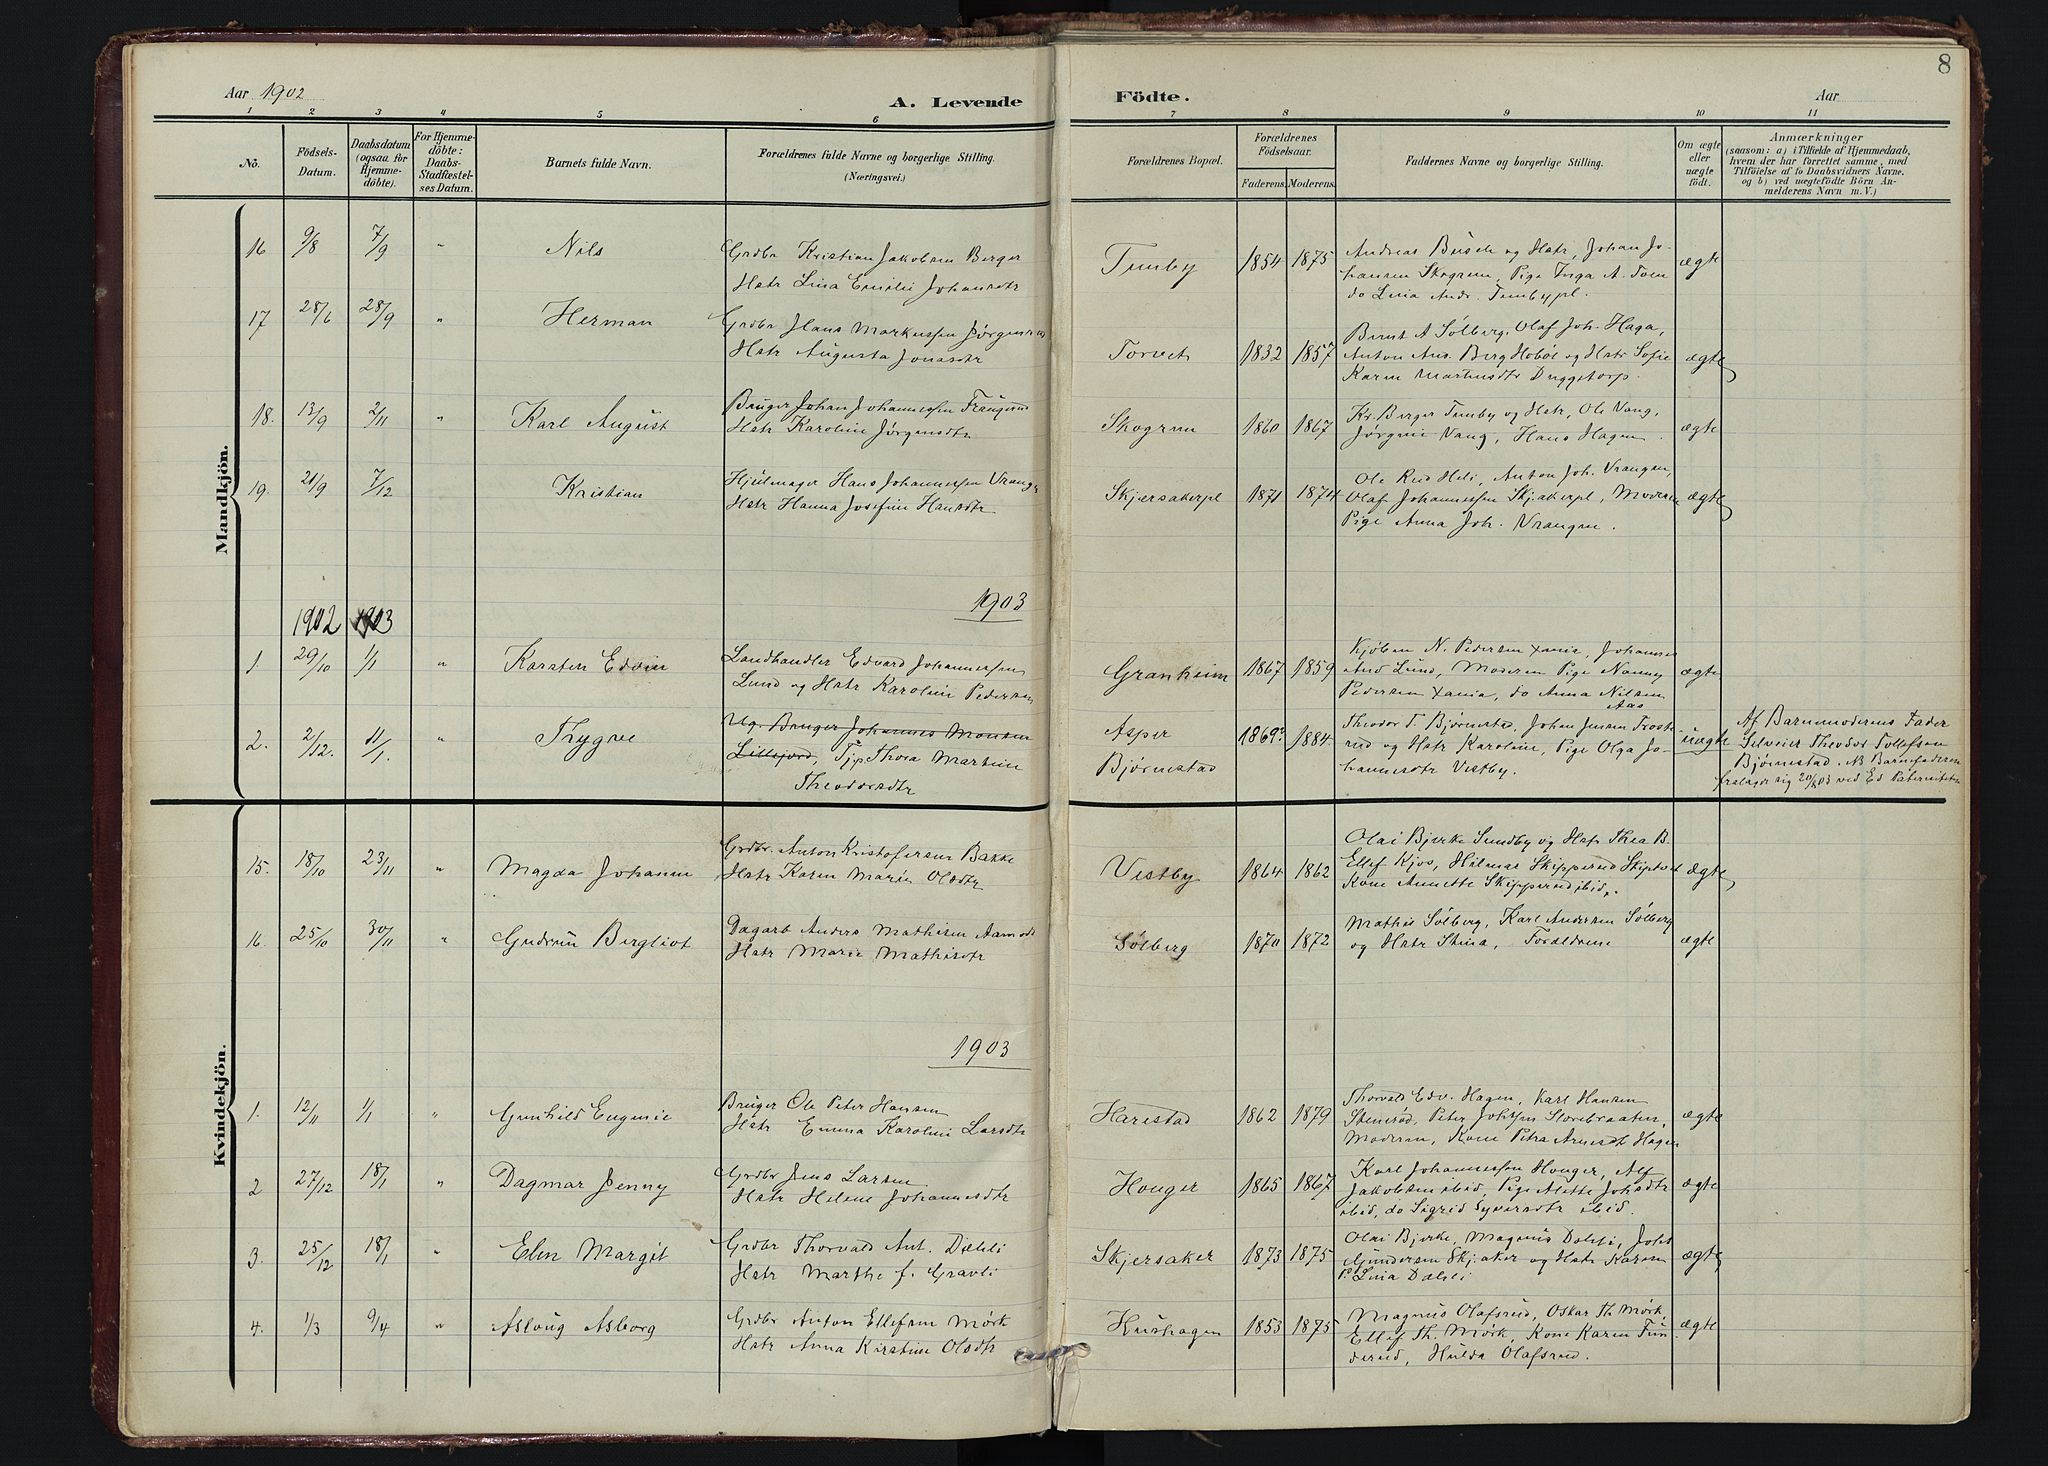 8
Aar 1902
A. Levende
Födte.
Aar
1 2 3 4 5 6 7 8 9 10 11
No.
Födsels-Datum.
Daabsdatum (ogsaa for Hjemmedöbte).
For Hjemmedöbte: Daabs-Stadfæstelses Datum.
Barnets fulde Navn.
Forældrenes fulde Navne og borgerlige Stilling.
(Næringsvei.)
Forældrenes Bopæl.
Forældrenes Födselsaar.
Faderens. Moderens.
Faddernes Navne og borgerlige Stilling.
Om ægte eller uægte födt.
Anmærkninger
(saasom: a) i Tilfælde af Hjemmedaab, hvem der har forrettet samme, med Tilföielse af to Daabsvidners Navne. og b) ved uægtefödte Börn Anmelderens Navn m. V.)
Mandkjön.
16 9/8 7/9 " Nils
Grdbr Kristian Jakobsen Berger
Hstr Lina Emilie Johansdtr
Tumby 1854 1875
Andreas Busch og Hstr, Johan Jo-
hansen Skogrun, Pige Inga A. Tom
do Lina Andr. Tumbypl.
ægte
17 28/6 28/9 " Herman
Grdbr Hans Markussen Jørgensen
Hstr Augusta Jonasdtr
Torvet 1832 1857
Bernt A Sølberg, Olaf Joh. Haga,
Anton And. Berg Hobøl og Hstr Sofie
Karen Martinsdtr Duggetorp.
ægte
18. 13/9 2/11 " Karl August
Bruger Johan Johannessen Frøugerud
Hstr Karoline Jørgensdtr
Skogrun 1860 1867
Kr. Berger Tumby og Hstr, Ole Vang,
Jørgine Vang, Hans Hagen.
ægte
19. 21/9 7/12 Kristian
Hjulmager Hans Johannessen Vrangen
Hstr Hanna Josefine Hansdtr
Skjersakerpl 1871 1874
Ole Rud Heli, Anton Joh. Vrangen,
Olaf Johannessen Skjakerpl, Moderen
Pige Anna Joh. Vrangen.
ægte
1903
1902 1903
1 29/10 1/1 " Karsten Edvin
Landhandler Edvard Johannessen
Lund og Hstr Karoline Pedersen
Granheim 1867 1859
Kjøbm N. Pedersen Xania, Johannes
And Lund, Moderen Pige Nanny
Pedersen Xania, do Anna Nilsen
Aas
ægte
2. 2/12. 11/1. " Trygve
Ug. Bruger Johannes Monsen
Lillefjord, Tjp Thora Martine
Theodorsdtr
Asper
Bjørnestad
1869? 1884
Theodor T. Bjørnestad, Johan Jensen Trost-
rud og Hstr Karoline, Pige Olga Jo-
hannesdtr Vestby.
uægte
Af Barnemoderens Fader
Selveier Theodor Tollefsen
Bjørnestad. NB Barnefaderen
fralagde sig 20/ 03 ved Ed Paterniteten
Kvindekjön.
15. 18/10 23/11 " Magda Johanne
Grdbr. Anton Kristofersen Bakke
Hstr Karen Marie Olsdtr
Vestby 1864 1862
Olai Bjerke Sundby og Hstr Thea B.
Ellef Kjos, Hilmar Skipperud Skiptvet
Kone Annette Skipperud ibid.
ægte
16. 25/10 30/11 " Gudrun Bergliot
Dagarb Anders Mathisen Aamodt
Hstr Marie Mathisdtr
Sølberg 1870 1872
Mathis Sølberg, Karl Andersen Sølberg
og Hstr Stina, Forældrene
ægte
1903
1. 12/11 1/1 " Gunhild Eugenie
Bruger Ole Peter Hansen
Hstr Emma Karoline Larsdtr
Harestad 1862 1879
Thorvald Edv. Hagen, Karl Hansen
Stenerød, Peter Johssen Storebraaten,
Moderen, Kone Petra Arnesdt Hagen
ægte
2 27/12 18/1 " Dagmar Jenny
Grdbr Jens Larsen
Hstr Helene Johannesdtr
Houger 1865 1867
Karl Johannessen Houger, Alf
Jakobsen ibid, Pige Alette Johsdtr
ibid, do Sigrid Syversdtr ibid.
ægte
3. 25/12 18/1 " Elen Margit
Grdbr Thorvald Ant. Dæhli
Hstr Marthe f. Gravli
Skjersaker 1873 1875
Olai Bjerke, Magnus Dæhli, Johs
Gundersen Skjæker og Hstr Karen
P. Lina Dæhli
ægte
4. 1/3 9/4 " Aslaug Asborg
Grdbr Anton Ellefsen Mørk
Hstr Anna Kirstine Olsdtr
Hushagen 1853 1875
Magnus Olafsrud, Oskar Th. Mørk
Ellef Th. Mørk, Kone Karen Tun
derud, Hulda Olafsrud.
ægte